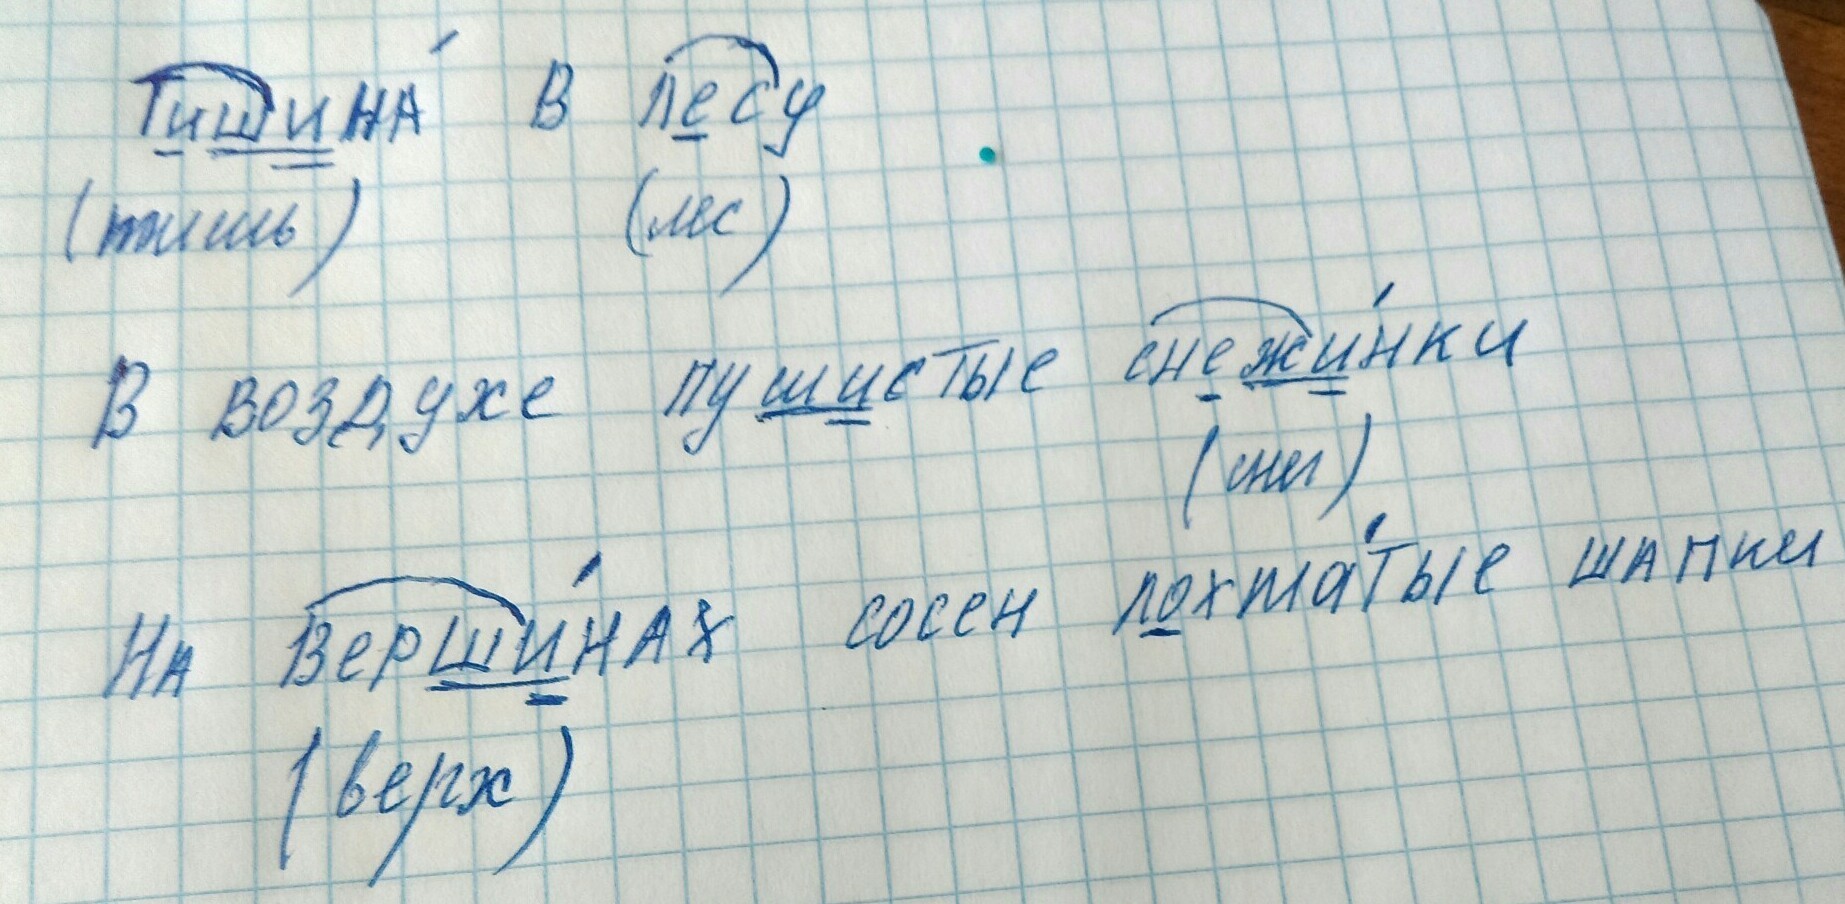 Тишина́ в лесу
(тишь) (лес)
В воздухе пушистые снежи́нки
(снег)
На верши́нах сосен лохма́тые шапки
(верх)